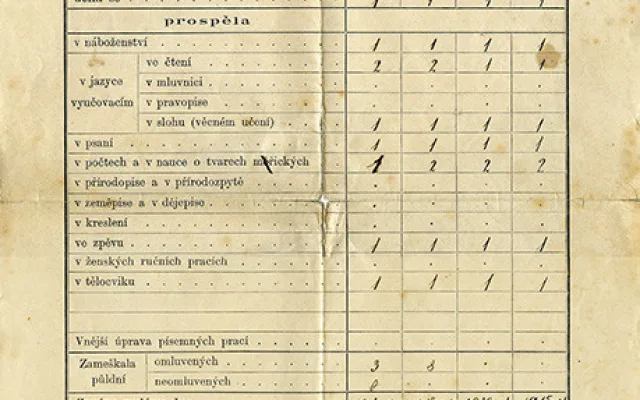 prospěla
v náboženství 1 1 1 1
v jazyce vyučovacím
ve čtení 2 2 1 1
v mluvnici
v pravopise
v slohu (věcném učení) 1 1 1 1
v psaní 1 1 1 1
v počtech a v nauce o tvarech měřických 1 2 2 2
v přírodopise a v přírodozpytě
v zeměpise a v dějepise
v kreslení
ve zpěvu 1 1 1 1
v ženských ručních pracích
v tělocviku 1 1 1 1
Vnější úprava písemných prací
Zameškala půldní
omluvených 3 8
neomluvených